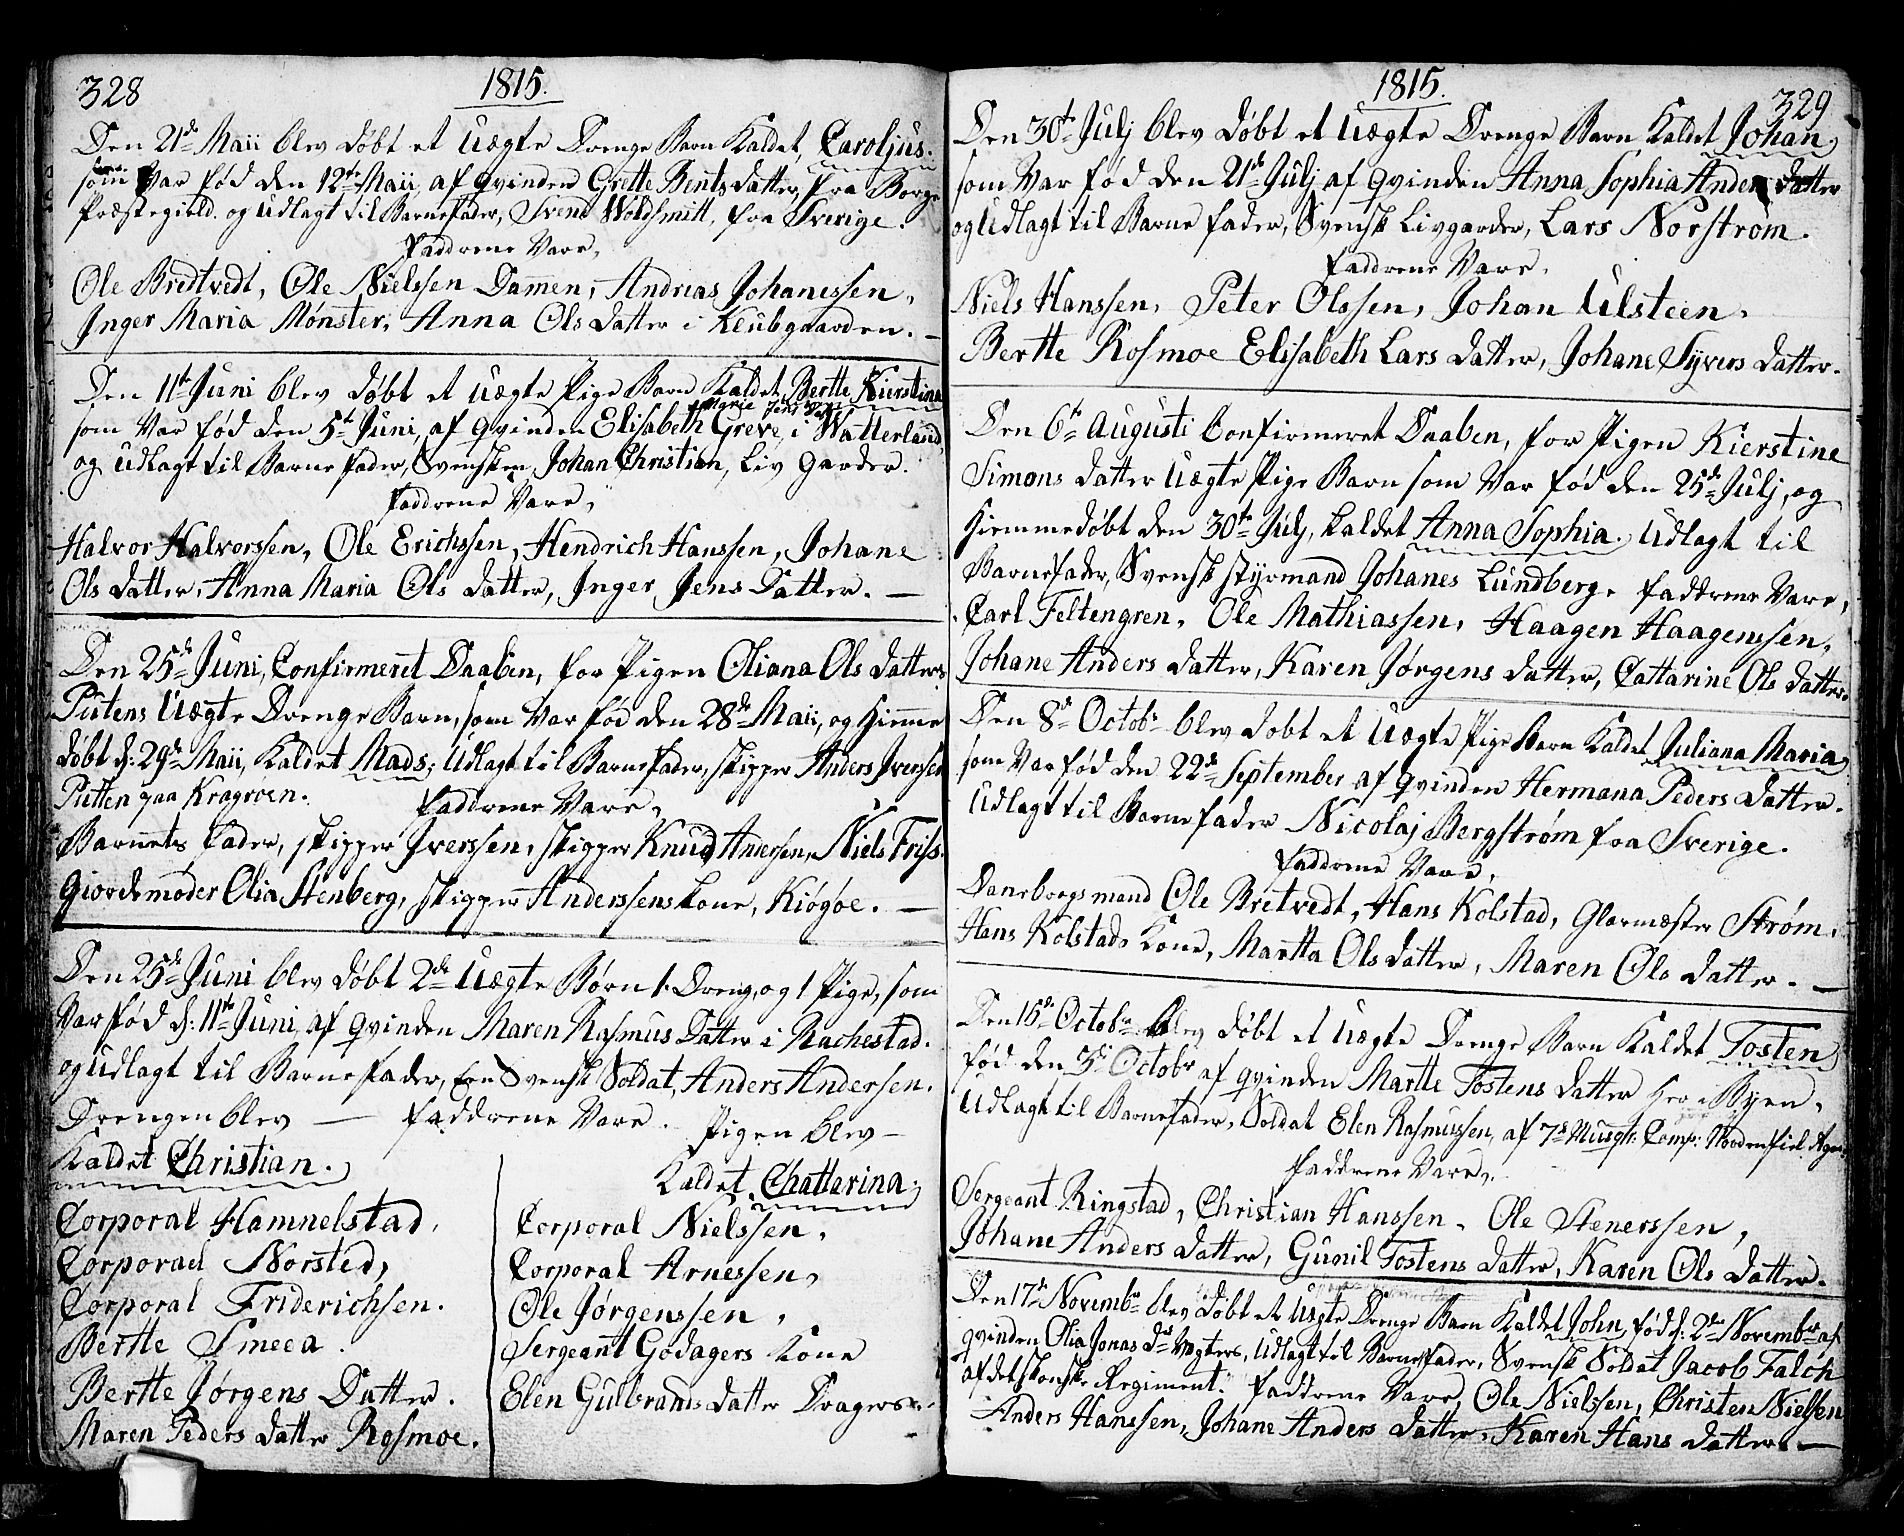 328
1815.
Den 21de Maii blev døbt et Uægte Drenge Barn kaldet, Caroljus.
som Var fød den 12te Maii, af qvinden Grette Bents datter, fra Borge
Præstegield. og Udlagt til Barnefader, Svend Woldsmitt, fra Sverige.
Faddrene Vare,
Ole Bredtvedt, Ole Nielssen Dam̅en, Andrias Johanessen,
Inger Maria Mønster, Anna Ols datter i Klubgaarden. —
Den 11te Juni blev døbt et Uægte Pige Barn kaldet Bertte Kierstina
Marie Jens Dat
som Var fød den 5te Juni, af qvinden Elisabeth Greve, i Watterland,
og Udlagt til Barne fader, Svensken Johan Christian, Liv Garder.
Faddrene Vare,
Halvor Halvorssen, Ole Erichssen, Hendrich Hanssen, Johane
Ols datter, Anna Maria Ols datter, Inger Jens Datter. —
Den 25de Juni, Confirmeret Daaben, for Pigen Oliana Ols datters
Puttens Uægte Drenge Barn, som Var fød den 28de Maii, og Hiem̅e
døbt d: 29de Maii, kaldet Mads, Udlagt til Barnefader, skipper Anders Iverssen
Putten paa Kragroen. Faddrene Vare,
Barnets Fader, skipper Iverssen, skipper Knud Andersen, Niels Friss.
Giordemoder Olia Stenberg, skipper Anderssens kone, Kiøgøe. —
Den 25de Juni blev døbt 2de Uægte Børn 1. Dreng, og 1 Pige, som
Var fød d: 11te Juni, af qvinden Maren Rasmus Datter i Rachestad.
og Udlagt til Barnefader, een Svensk Soldat, Anders Andersen.
Drengen blev — Faddrene Vare. Pigen blev —
kaldet Christian.
kaldet Chattarina.
Corporal Hamnelstad,
Corporal Norsted,
Corporal Friderichsen.
Bertte Smeea.
Bertte Jørgens Datter.
Maren Peders datter Rosmoe.
Corporal Nielssen,
Corporal Arnessen,
Ole Jørgenssen,
Sergeant Godagers kone
Elen Gulbrands datter Dragers
329
1815.
Den 30te Julj blev døbt et Uægte Drenge Barn kaldet Johan,
som Var fød den 21de Julj af qvinden Anna Sophia Anders datter
og Udlagt til Barne fader, Svensk Livgarder, Lars Norstrøm.
Faddrene Vare,
Niels Hanssen, Peter Olssen, Johan Ulsteen,
Bertte Rosmoe Elisabeth Lars datter, Johane Syvers datter.
Den 6te Augusti Confirmeret Daaben, for Pigen Kierstine
Simons datter Uægte Pige Barn som Var fød den 25de Julj, og
Hiemmedøbt den 30te July, kaldet Anna Sophia. Udlagt til
Barnefader, Svensk styrmand Johanes Lundberg. Faddrene Vare,
Carl Feltengren, Ole Mathiassen, Haagen Haagenssen,
Johane Anders datter, Karen Jørgens datter, Cattarine Ols datter.
Den 8de Octobr blev døbt et Uægte Pige Barn kaldet Juliana Maria,
som Var fød den 22de September af qvinden Hermana Peders datter.
Udlagt til Barnefader Nicolaj Bergstrøm fra Sverige.
Faddrene Vare,
Daneborgsmand Ole Bretvedt, Hans Kolstad, Glarmæster Strøm,
Hans Kolstads kone, Martta Ols datter, Maren Ols datter. —
Den 15de Octobr blev døbt et Uægte Drenge Barn kaldet Tosten
fød den 3die Octobr af qvinden Martte Tostens datter Her i Byen,
Udlagt til Barnefader, Soldat Elen Rasmussen, af 7de Musqt: Comp: Nordenfiel.
Faddrene Vare,
Sergeant Ringstad, Christian Hanssen, Ole Stenerssen,
Johane Anders datter, Gunil Tostens datter, Karen Ols datter.
Den 17de Novembr blev døbt et Uægte Drenge Barn kaldet John, fød d: 2de Novembr af
qvinden Olia Jonas dr Vægters, Udlagt til Barnefader, Svensk Soldat Jacob Falch
af det skonske Regiment. Faddrene Vare, Ole Nielssen, Christen Nielsen
Anders Hanssen, Johane Anders datter, Karen Hans datter. —